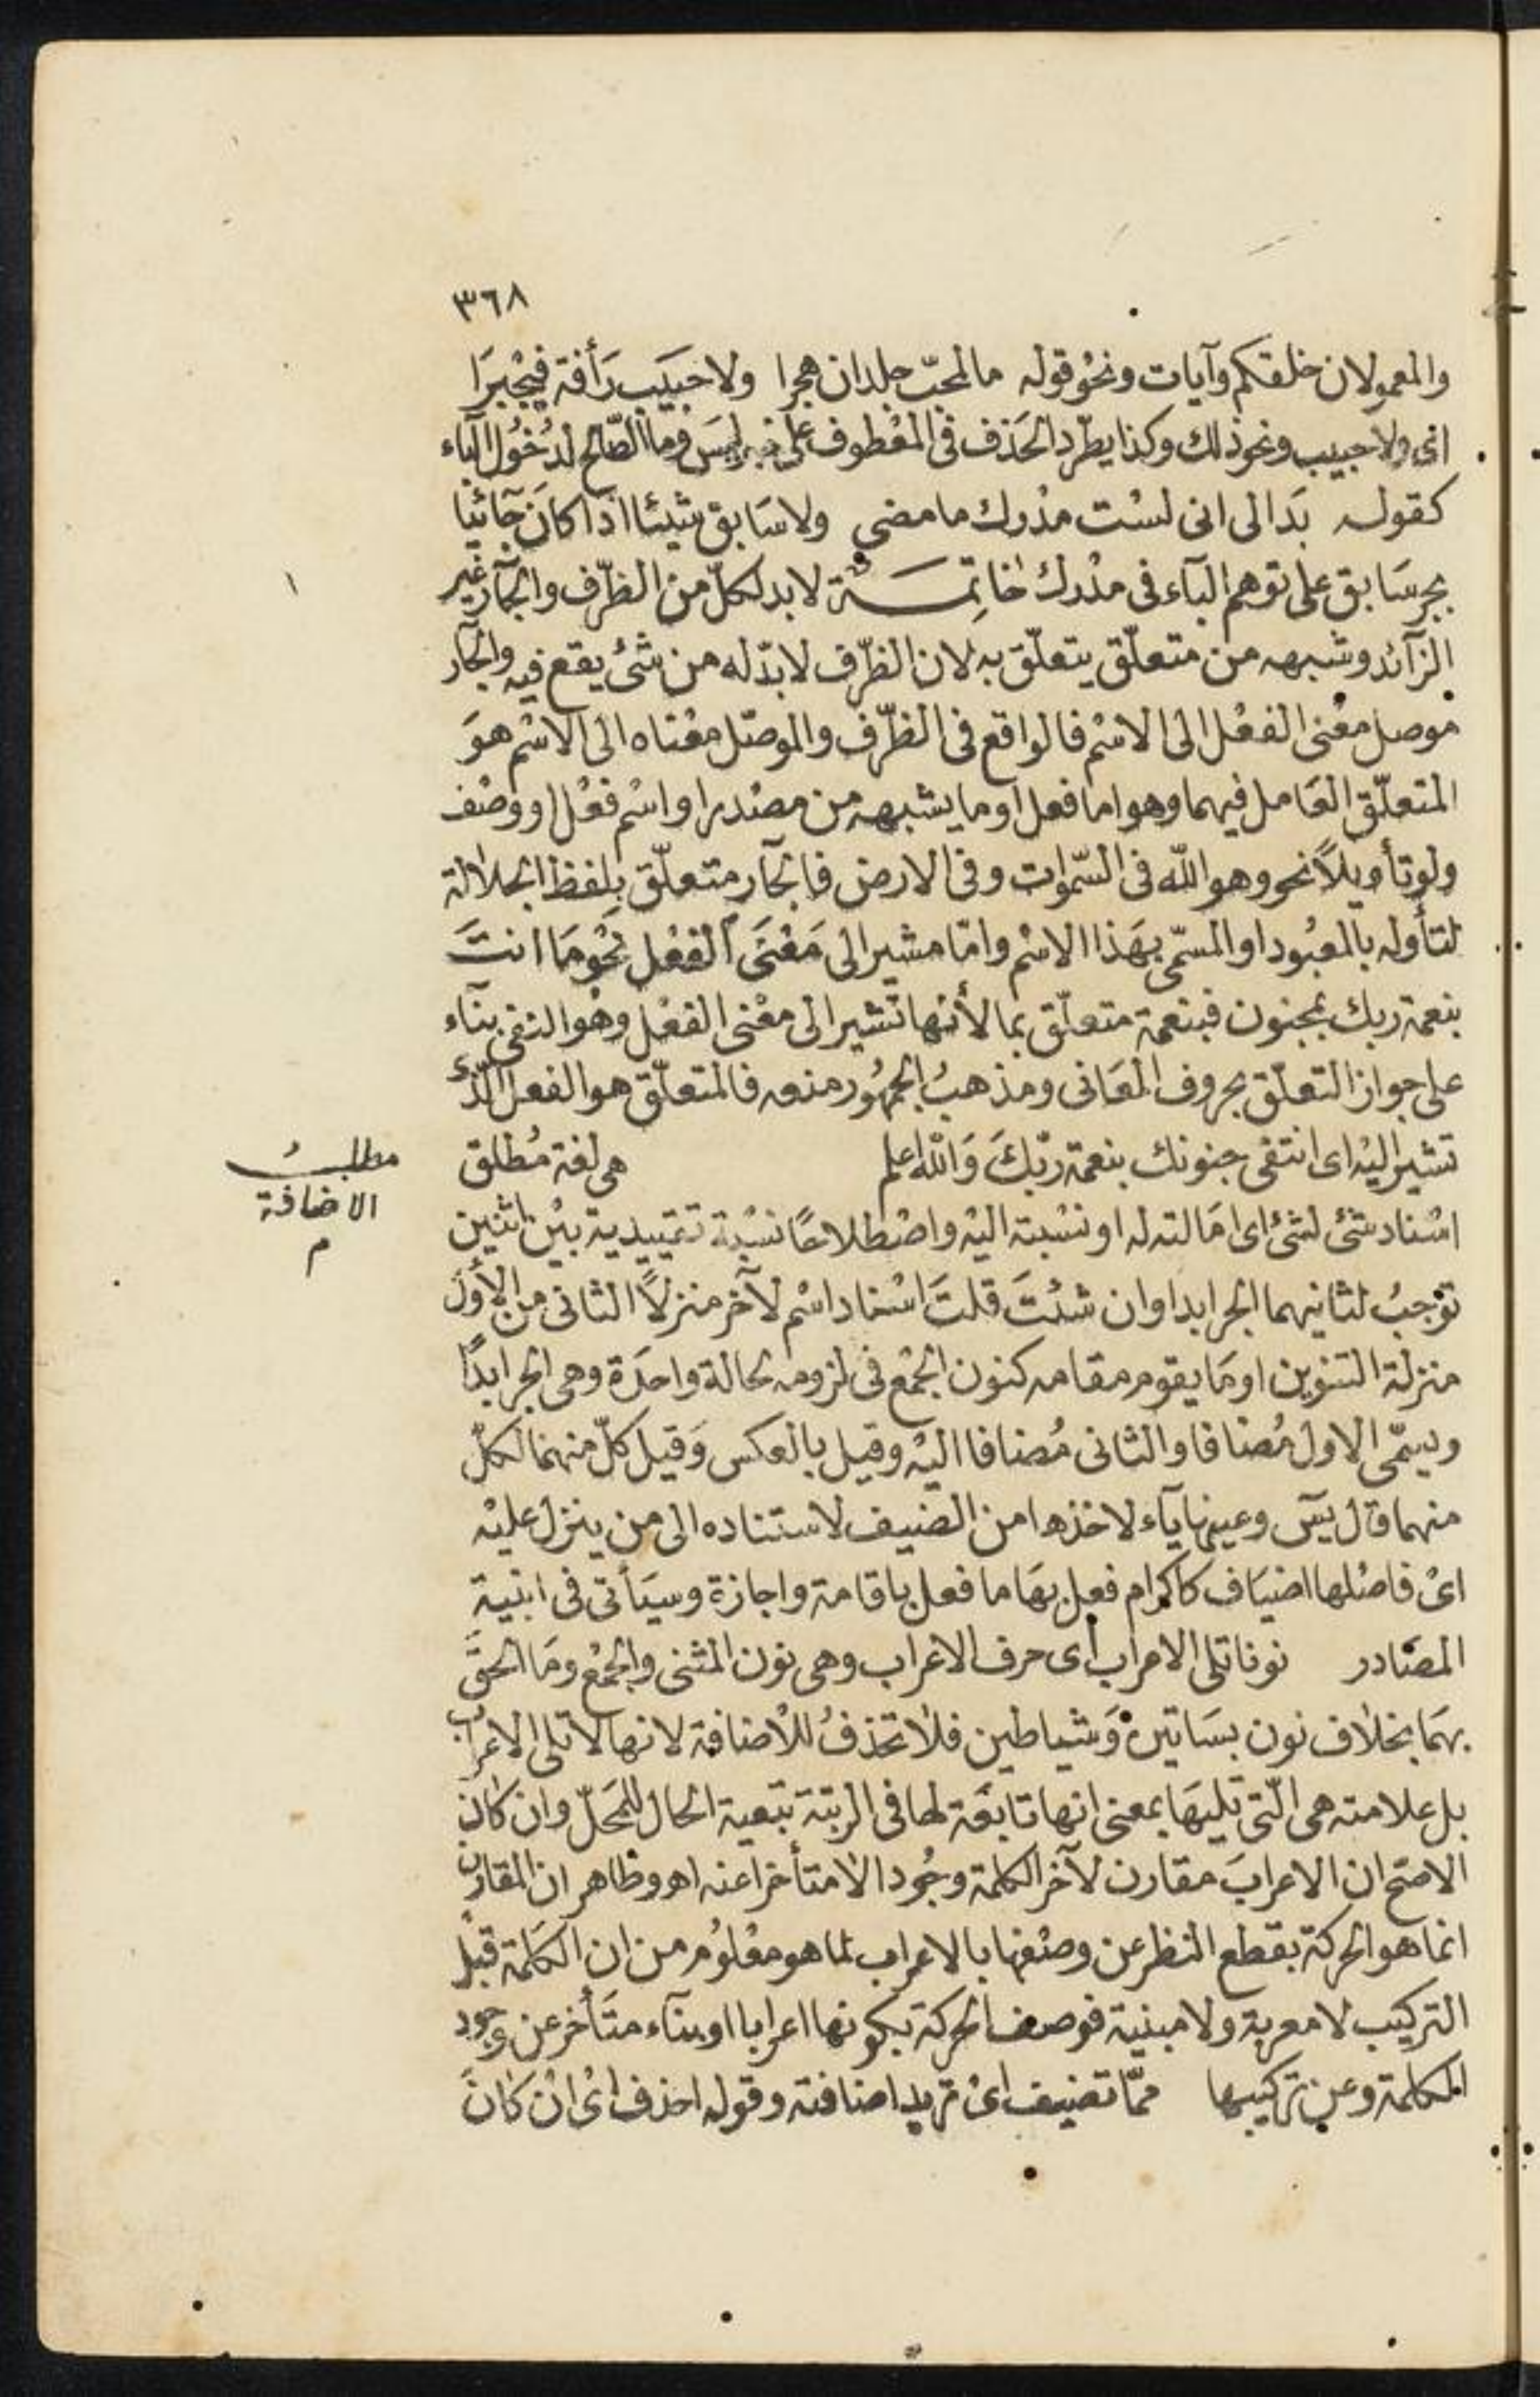 ٣٦٨
والمعمولان خلقكم وآيات ونحو قوله مالمحبّ جلدان هجرا ولا حبيب رَأفة فيجْبرَا
اى ولا حبيب ونحو ذلك وكذا يطّرد الحَذف فى المعْطوف على خبر ليسَ وما الصّالح لدُخُول الباء
كقوله بَدا لى انى لسْت مدْرك ما مضى ولا سَابق شيئا اذا كانَ جَائيا
بجر سَابق على توهم البآء فى مدْرك خَاتِمَــة لابد لكلّ من الظرّف والجآر غير
الزآئد وشبهه من متعلّق يتعلّق به لان الظرّف لابدّ له من شئ يقع فيه والجآر
موصل معْنى الفعْل الى الاسْم فالواقع فى الظرّف والموصّل معْناه الى الاسْم هوَ
المتعلّق العَامل فيهما وهو اما فعل او ما يشبهه من مصْدر او اسْم فعْل او وصْف
ولو تأويلاً نحو وهو اللّه فى السّموات وفى الارض فالجآر متعلّق بلفظ الجلالة
لتأوله بالمعبُود او المسمّى بهَذا الاسْم وامّا مشير الى مَعْنَى الفعْل نحْو مَا انتَ
بنعمة ربك بمجنون فبنعمة متعلّق بما لأنها تشير الى معْنى الفعْل وهْو النفى بنآء
على جواز التعلّق بحروف المعَانى ومذهبُ الجمهُور منعه فالمتعلّق هو الفعل الّذى
تشير اليْه اى انتفى جنونك بنعمة ربّكَ وَاللّه اعلم هى لغة مُطْلق
مطلبُ
الاضافة
م
اسْناد شئ لشئ اى امَالته له او نسْبته اليْه واصْطلاحًا نسْبة تقييدية بيْن اثنين
توْجبُ لثانيهما الجر ابدا وان شئتَ قلتَ اسْناد اسْم لآخر منزلاً الثانى من الأول
منزلة التنوين او مَا يقوم مقامه كنون الجمْع فى لزومه لحالة واحدَة وهى الجر ابدًا
ويسمّى الاول مُضافا والثانى مُضافا اليْه وقيل بالعكس وَقيل كلّ منهما لكلّ
منهما قال يسٓ وعينها يآء لاخذها من الضيف لاستناده الى من ينزل عليْه
اىْ فاصْلها اضيَاف كاكرام فعل بهَا ما فعل باقامة واجازة وسيَأتى فى ابنية
المصَادر نونا تلى الاعراب اى حرف الاعراب وهى نون المثنى والجمْع ومَا الحق
بهمَا بخلاف نون بسَاتين وَشياطين فلا تحْذفُ للاضافة لانها لا تلى الاعراب
بل علامته هى الّتى تليهَا بمعنى انها تابعَة لها فى الرتبة تبعية الحال للمَحلّ وان كان
الاصّح ان الاعرابَ مقارن لآخر الكلمة وجُودا لا متأخرا عنه اهـ وظاهر ان المقارن
انما هو الحركة بقطع النظر عن وصْفها بالاعراب لما هو معْلوُم من ان الكلمة قبْل
التركيب لا معربة ولا مبنية فوصف الحركة بكونها اعرابا او بنآء متَأخر عن وجود
الكلمة وعن تركيبها ممّا تضيف اىْ تريد اضافته وقوله احذف اىْ انْ كانَ